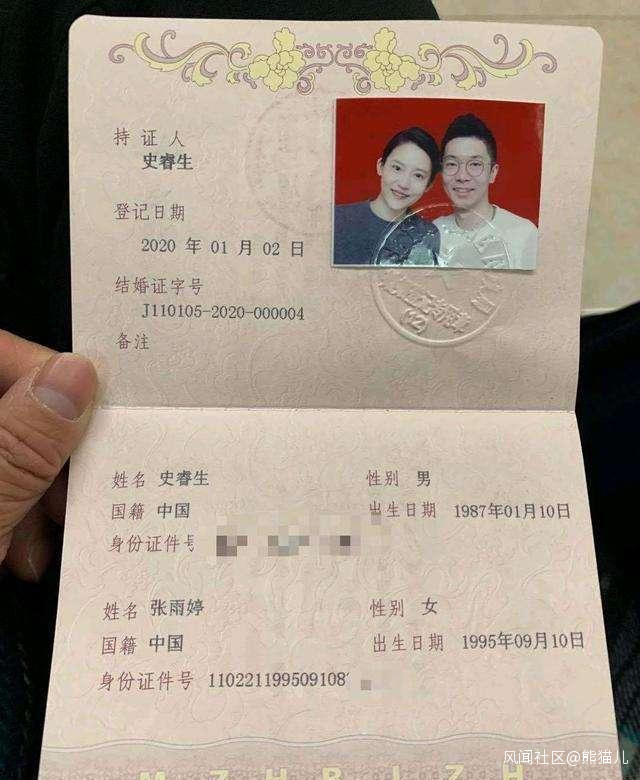 持证人
史睿生
登记日期
2020 年 01 月 02 日
结婚证字号
J110105-2020-000004
备注
姓名 史睿生 性别 男
国籍 中国 出生日期 1987年01月10日
身份证件号
姓名 张雨婷 性别 女
国籍 中国 出生日期 1995年09月10日
身份证件号 110221199509108
M Z H B J Z H
风闻社区@熊猫儿